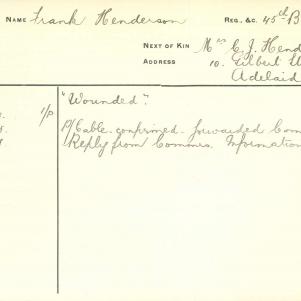 NAME Frank Henderson REG. &c. 45th B
NEXT OF KIN Mrs C. J. Hend
ADDRESS 10. Gilbert St
Adelaid
1/P "Wounded".
Cable confirmed. forwarded Com
Reply from Commrs. Information